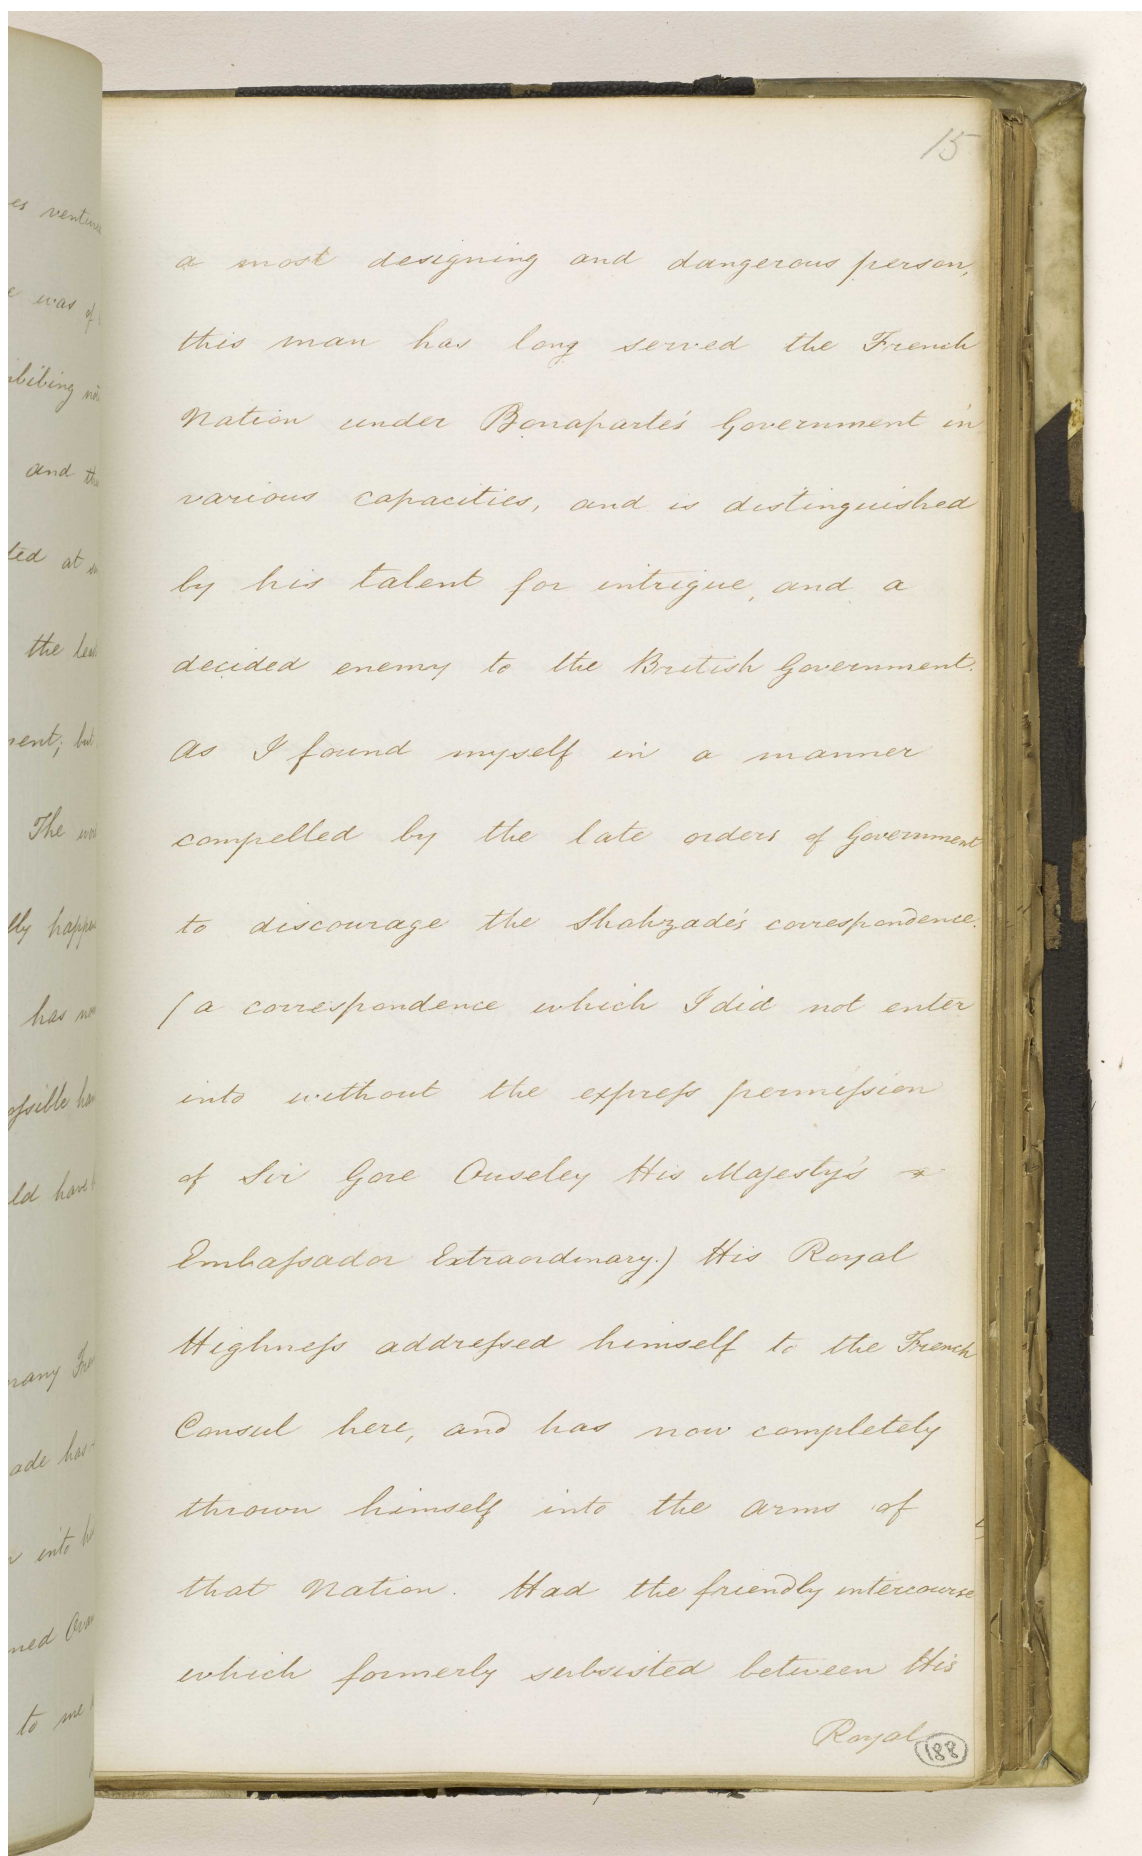 15
a most designing and dangerous person,
this man has long served the French
Nation under Bonaparte's Government in
various capacities, and is distinguished
by his talent for intrigue, and a
decided enemy to the British Government.
As I found myself in a manner
compelled by the late orders of Government
to discourage the Shahzade's correspondence.
(a correspondence which I did not enter
into without the express permission
of Sir Gore Ouseley His Majesty's
Embassador Extraordinary.) His Royal
Highness addressed himself to the French
Consul here, and has now completely
thrown himself into the arms of
that Nation. Had the friendly intercourse
which formerly subsisted between His
Royal
188
was of
and
at
the
The
has
to me